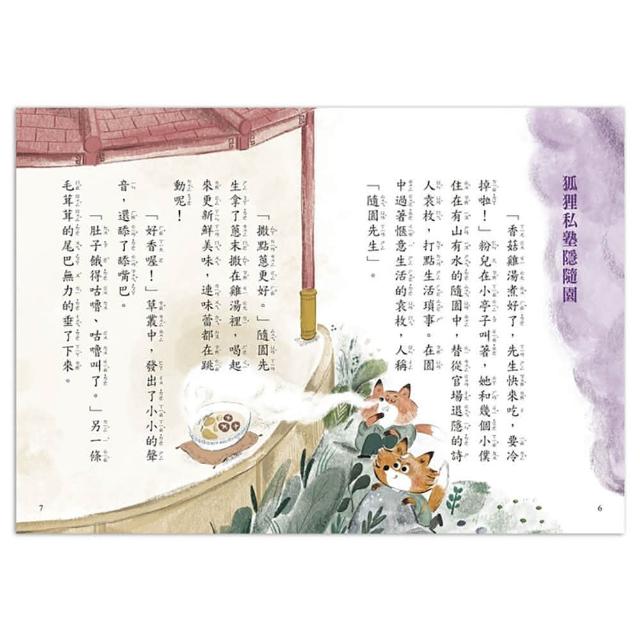 狐狸私塾隱隨園
「香菇雞湯煮好了，先生快來吃，要冷
掉啦！」粉兒在小亭子叫著，她和幾個小僕
住在有山有水的隨園中，替從官場退隱的詩
人袁枚，打點生活瑣事。在園
中過著愜意生活的袁枚，人稱
「隨園先生」。
6
「撒點蔥更好。」隨園先
生拿了蔥末撒在雞湯裡，喝起
來更新鮮美味，連味蕾都在跳
動呢！
「好香喔！」草叢中，發出了小小的聲
音，還舔了舔嘴巴。
「肚子餓得咕嚕、咕嚕叫了。」另一條
毛茸茸的尾巴無力的垂了下來。
7